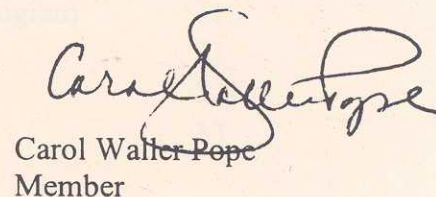 Carol Waller Pope
Carol Waller Pope
Member